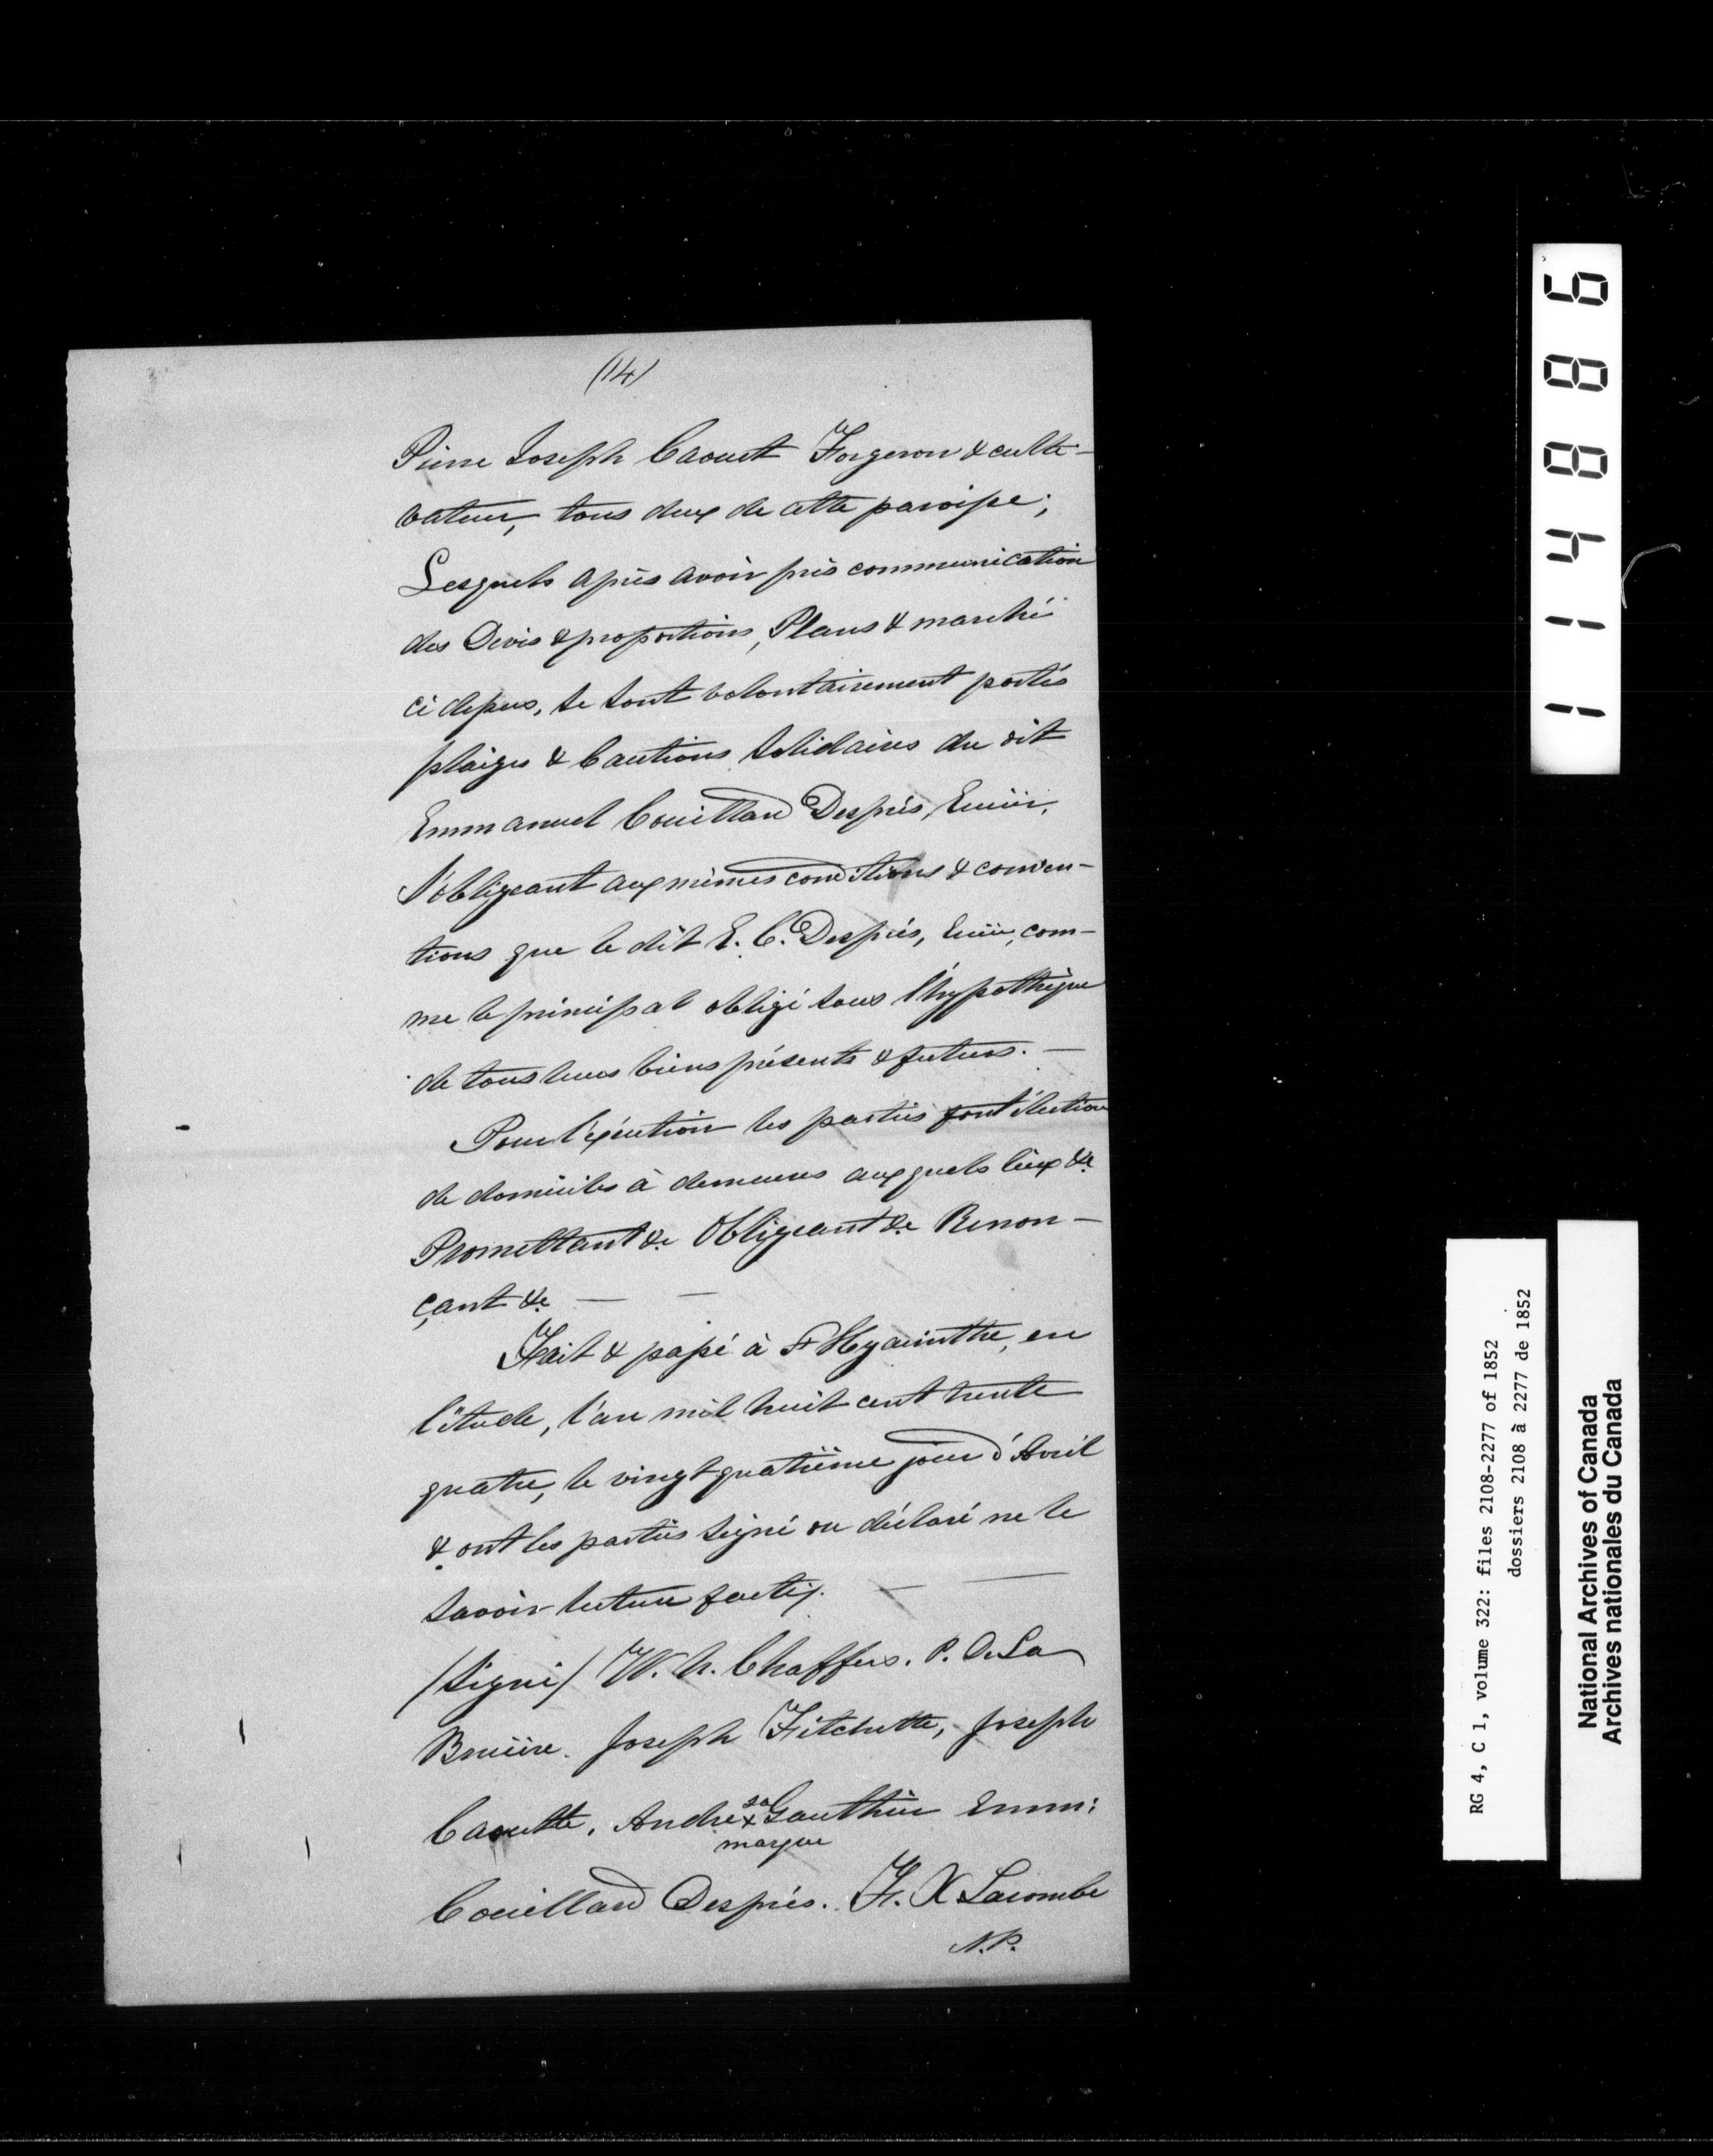 (14)
Pierre Joseph Caouet Forgeron & culti-
vateur, tous deux de cette paroisse;
Lesquels après avoir pris communication
des Devis & proportions, Plans & marché
ci dessus, se sont volontairement portés
plaiges & Cautions solidaires du dit
Emmanuel Couillard Després, Ecuier,
s'obligeant aux mêmes conditions & conven-
tions que le dit E. C. Després, Ecuier, com-
me le principal obligé sous l'hypothèque
de tous leurs biens présents & futurs. —
Pour l'exécution les parties font élection
de domiciles à demeures auxquels lieux &c
Promettant &c Obligeant &c Renon-
çant &c — —
Fait & passé à St Hyacinthe, en
l'étude, l'an mil huit cent trente
quatre, le vingt quatrième jour d'Avril
& ont les parties signé ou déclaré ne le
savoir lecture faite. — —
/signé/ W. U. Chaffers. P. De La
Bruière. Joseph Fitchette, Joseph
Caouette, André sa x marque Gauthier Emm:
Couillard Després. F. X Lacombe
N.P.
114886
RG 4, C 1, volume 322: files 2108-2277 of 1852
dossiers 2108 à 2277 de 1852
National Archives of Canada
Archives nationales du Canada